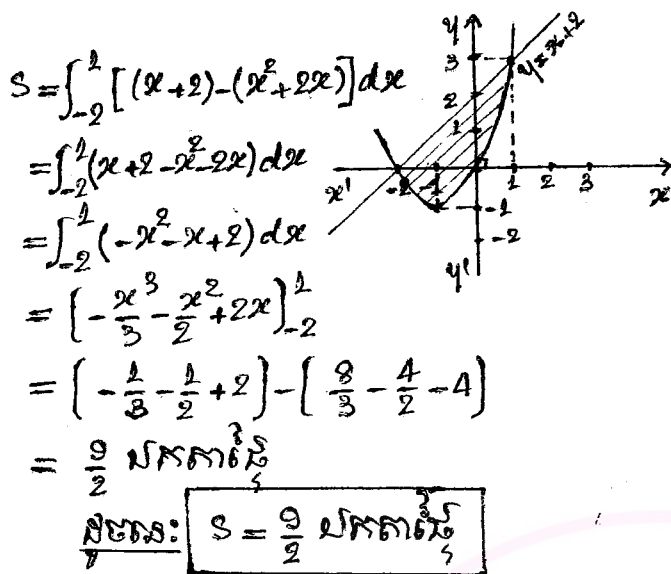 S = ∫₋₂¹ [(x+2)-(x²+2x)] dx
= ∫₋₂¹ (x+2-x²-2x) dx
= ∫₋₂¹ (-x²-x+2) dx
= [-x³/3 - x²/2 + 2x]₋₂¹
= (-1/3 - 1/2 + 2) - (8/3 - 4/2 - 4)
= 9/2 ឯកតាផ្ទៃ
ដូចនេះ S = 9/2 ឯកតាផ្ទៃ
y
y=x+2
3
2
1
x' -2 -1 0 1 2 3 x
-1
-2
y'